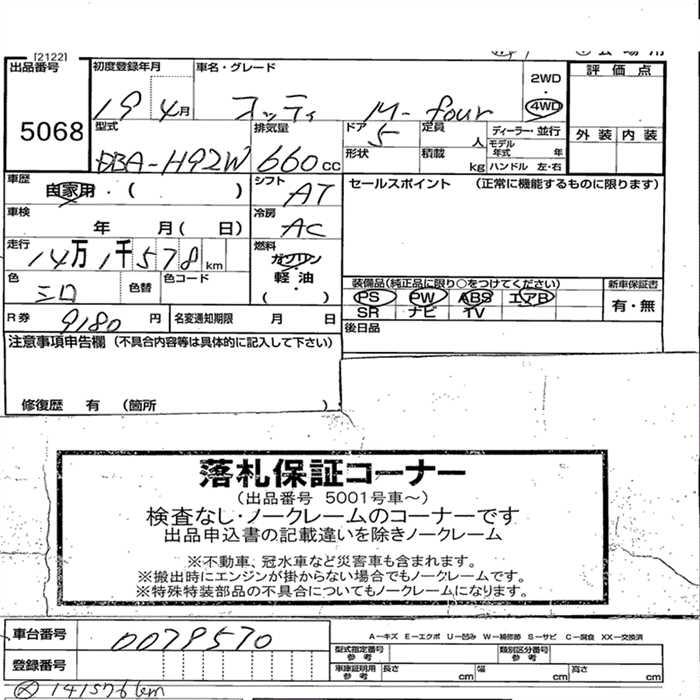 [2122]
出品番号
5068
初度登録年月
19 4月
車名・グレード
オッティ M-four
2WD
・
4WD
評価点
外装 内装
型式
DBA-H92W
排気量
660cc
ドア
5
定員
人
形状
積載
kg
ディーラー・並行
モデル年式 年
ハンドル 左・右
車歴
自家用・( )
シフト
AT
セールスポイント (正常に機能するものに限ります)
車検
年 月( 日)
冷房
AC
走行
14万1千578km
燃料
ガソリン
・
軽油
( )
色
シロ
色替
色コード
装備品(純正品に限り○をつけてください)
PS PW ABS エアB
SR ナビ TV
新車保証書
有・無
R券
9180円
名変通知期限 月 日
後日品
注意事項申告欄 (不具合内容等は具体的に記入して下さい)
修復歴 有 (箇所 )
落札保証コーナー
(出品番号 5001号車~)
検査なし・ノークレームのコーナーです
出品申込書の記載違いを除きノークレーム
※不動車、冠水車など災害車も含まれます。
※搬出時にエンジンが掛からない場合でもノークレームです。
※特殊特装部品の不具合についてもノークレームになります。
車台番号
0079570
A-キズ E-エクボ U-凹み W-補修跡 S-サビ C-腐食 XX-交換済
型式指定番号 参考
類別区分番号 参考
登録番号
車庫証明用 参考
長さ cm
幅 cm
高さ cm
141576km